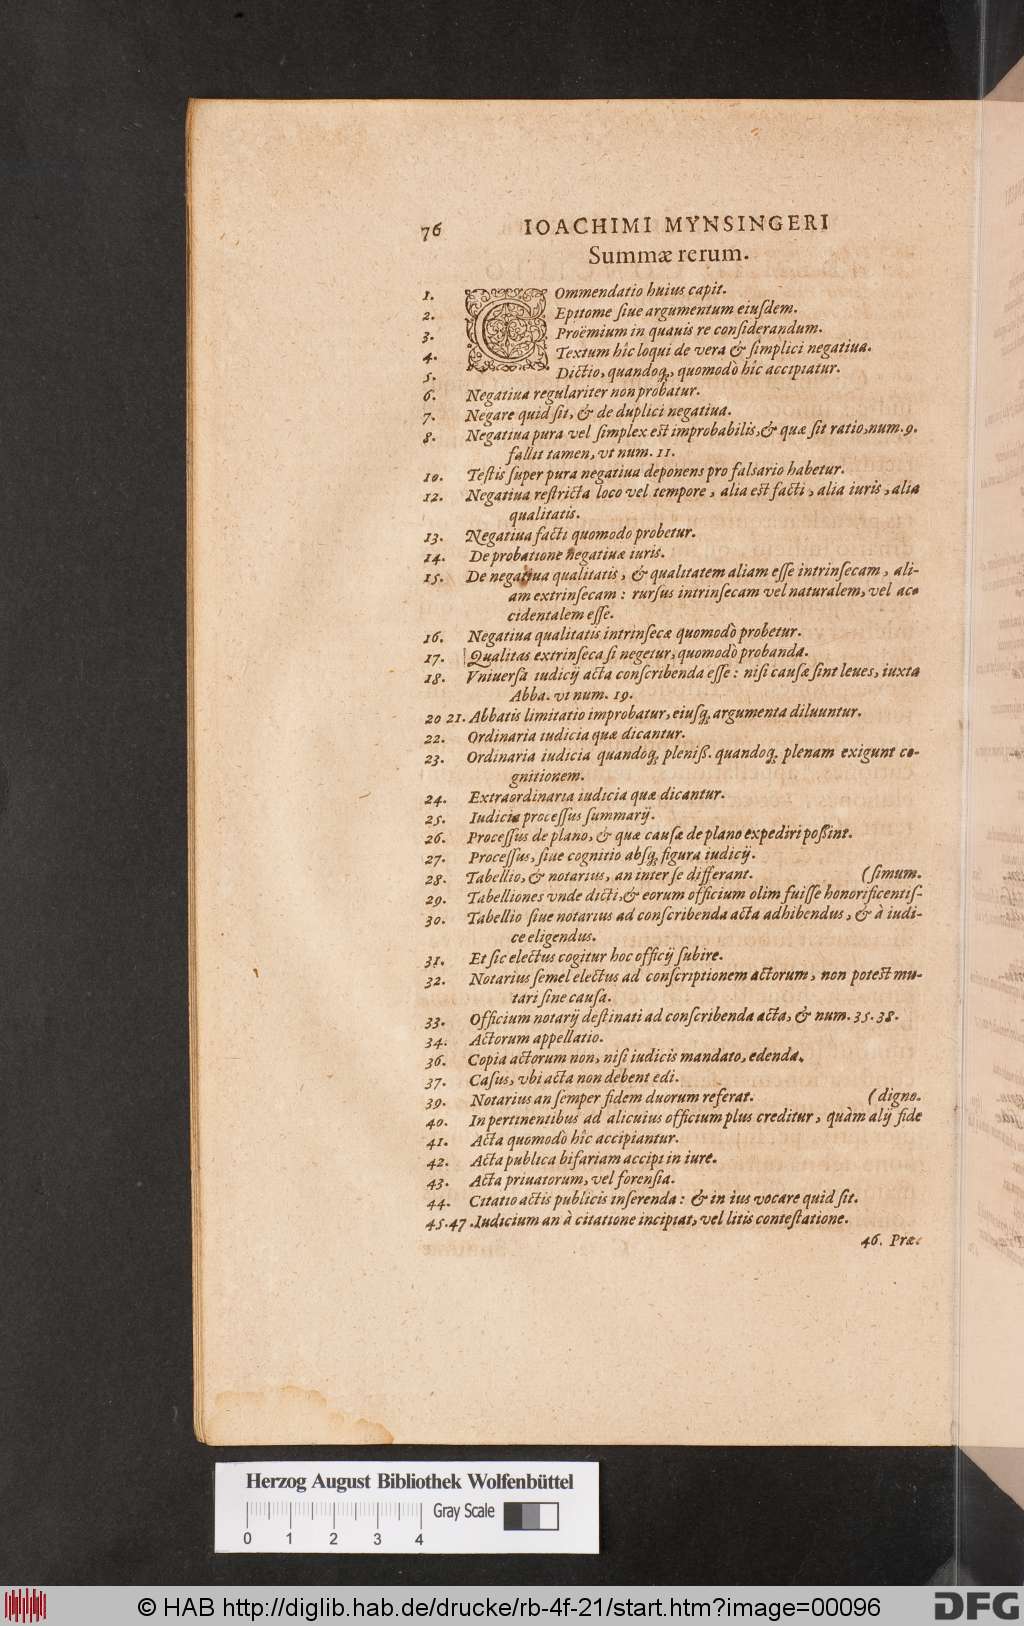 76 IOACHIMI MYNSINGERI
Summæ rerum.
1. Commendatio huius capit.
2. Epitome ſiue argumentum eiuſdem.
3. Proëmium in quauis re conſiderandum.
4. Textum hîc loqui de vera & ſimplici negatiua.
5. Dictio, quandoq;, quomodò hîc accipiatur.
6. Negatiua regulariter non probatur.
7. Negare quid ſit, & de duplici negatiua.
8. Negatiua pura vel ſimplex est improbabilis, & quæ ſit ratio, num. 9.
fallit tamen, vt num. 11.
10. Teſtis ſuper pura negatiua deponens pro falsario habetur.
12. Negatiua reſtricta loco vel tempore, alia est facti, alia iuris, alia
qualitatis.
13. Negatiua facti quomodo probetur.
14. De probatione negatiuæ iuris.
15. De negatiua qualitatis, & qualitatem aliam eſſe intrinſecam, ali-
am extrinſecam: rurſus intrinſecam vel naturalem, vel ac-
cidentalem eſſe.
16. Negatiua qualitatis intrinſecæ quomodò probetur.
17. Qualitas extrinſeca ſi negetur, quomodò probanda.
18. Vniuerſa iudicij acta conſcribenda eſſe: niſi cauſæ ſint leues, iuxta
Abba. vt num. 19.
20 21. Abbatis limitatio improbatur, eiuſq; argumenta diluuntur.
22. Ordinaria iudicia quæ dicantur.
23. Ordinaria iudicia quandoq; pleniß. quandoq; plenam exigunt co-
gnitionem.
24. Extraordinaria iudicia quæ dicantur.
25. Iudicia proceſſus ſummarij.
26. Proceſſus de plano, & quæ cauſæ de plano expediri poßint.
27. Proceſſus, ſiue cognitio abſq; figura iudicij.
28. Tabellio, & notarius, an inter ſe differant. (ſimum.
29. Tabelliones vnde dicti, & eorum officium olim fuiſſe honorificentiſ-
30. Tabellio ſiue notarius ad conſcribenda acta adhibendus, & à iudi-
ce eligendus.
31. Et ſic electus cogitur hoc officij ſubire.
32. Notarius ſemel electus ad conſcriptionem actorum, non potest mu-
tari ſine cauſa.
33. Officium notarij deſtinati ad conſcribenda acta, & num. 35. 38.
34. Actorum appellatio.
36. Copia actorum non, niſi iudicis mandato, edenda.
37. Caſus, vbi acta non debent edi.
39. Notarius an ſemper fidem duorum referat. (digno.
40. In pertinentibus ad alicuius officium plus creditur, quàm alij fide
41. Acta quomodò hîc accipiantur.
42. Acta publica bifariam accipi in iure.
43. Acta priuatorum, vel forenſia.
44. Citatio actis publicis inſerenda: & in ius vocare quid ſit.
45. 47. Iudicium an à citatione incipiat, vel litis conteſtatione.
46. Præ-
Herzog August Bibliothek Wolfenbüttel
Gray Scale
0 1 2 3 4
© HAB http://diglib.hab.de/drucke/rb-4f-21/start.htm?image=00096
DFG